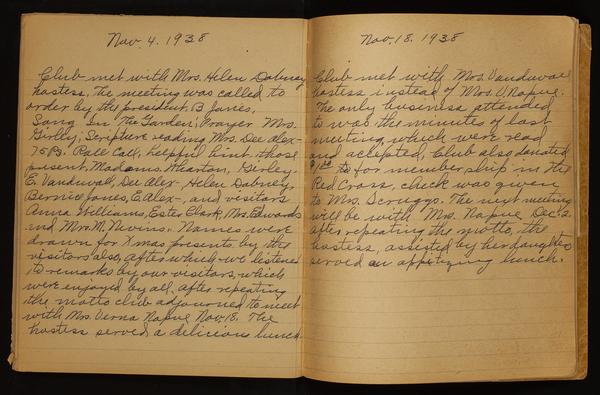 Nov. 4. 1938
Club met with Mrs. Helen Dabney
hostess, The meeting was called to
order by the president, B Jones,
Song In The Garden; Prayer Mrs.
Girley; Scripture reading Mrs. Dee Alex-
75 Ps. Roll Call, helpful hint, those
present, Madams. Wharton, Girley,
E. Vanduvall, Dee Alex- Helen Dabney,
Bernice Jones, E. Alex-, and visitors
Anna Williams, Ester Clark, Mrs. Edwards
and Mrs. M. Nevins. Names were
drawn for Xmas presents by the
visitors also, after which we listened
to remarks by our visitors, which
were enjoyed by all, after repeating
the motto club adjourned to meet
with Mrs. Verna Napue Nov. 18. The
hostess served a delicious lunch.
Nov. 18. 1938
Club met with Mrs. Vanduval
hostess instead of Mrs. V. Napue.
The only business attended
to was the minutes of last
meeting, which were read
and accepted, Club also donated
$1.00 for membership in the
Red Cross, check was given
to Mrs. Scruggs. The next meeting
will be with Mrs. Napue Dec. 2.
after repeating the motto, the
hostess, assisted by her daughter
served an appetizing lunch.